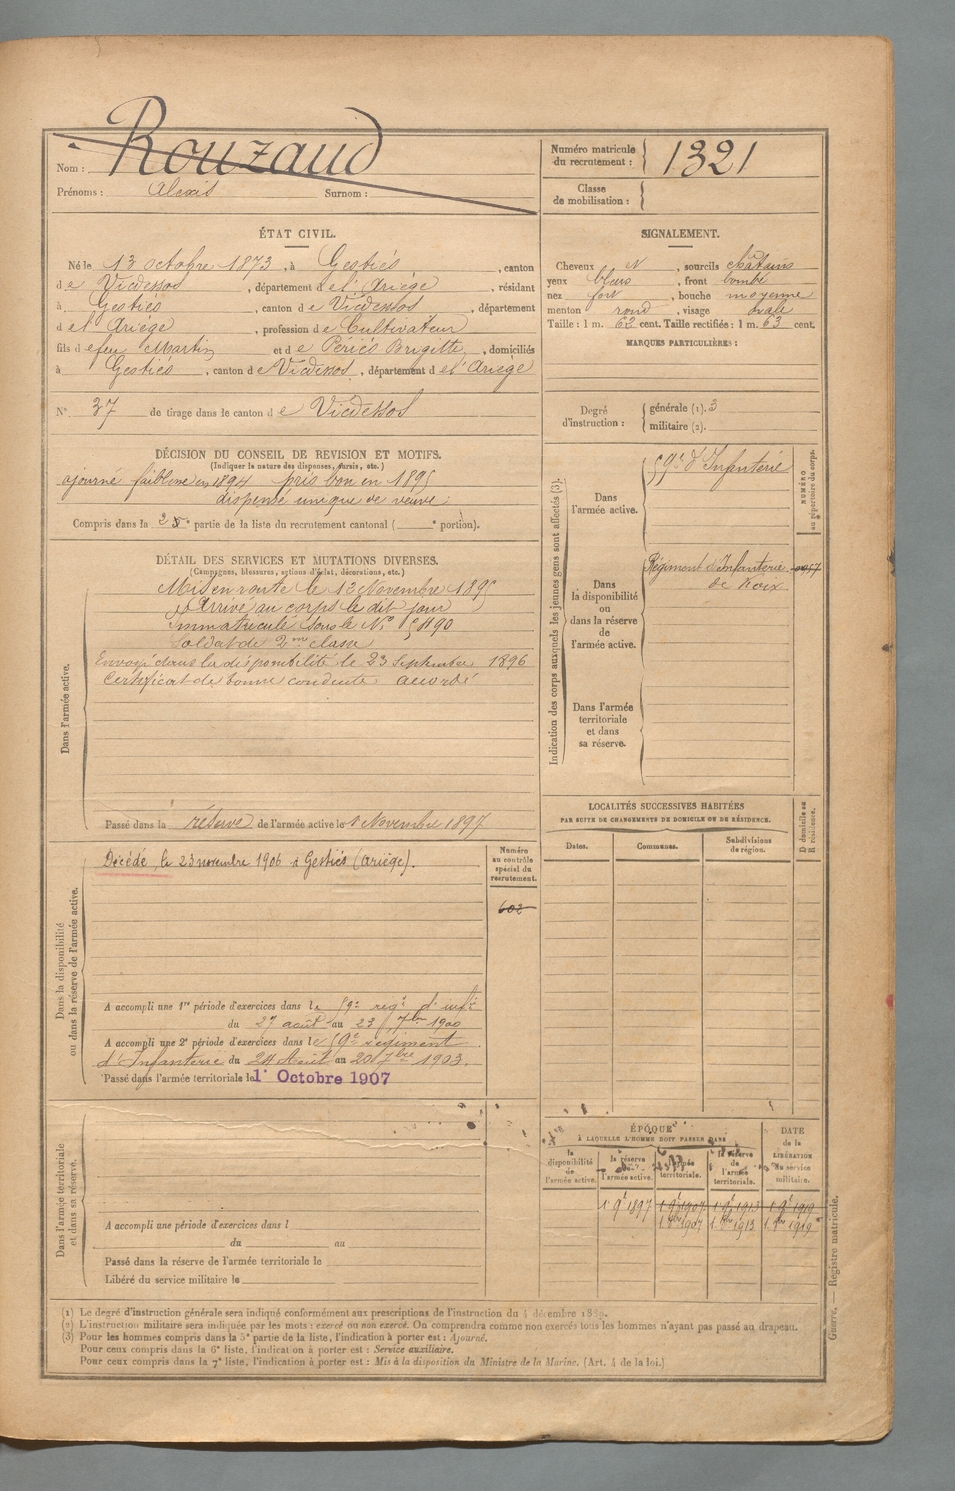 Nom : Rouzaud
Prénoms : Alexis Surnom :
Numéro matricule du recrutement : 1321
Classe de mobilisation :
ÉTAT CIVIL.
Né le 13 octobre 1873, à Gestiés, canton
de Vicdessos, département de l'Ariège, résidant
à Gestiés, canton de Vicdessos, département
de l'Ariège, profession de Cultivateur
fils de feu Martin et de Périés Brigitte, domiciliés
à Gestiés, canton de Vicdessos, département de l'Ariège
N° 37 de tirage dans le canton de Vicdessos
SIGNALEMENT.
Cheveux N, sourcils châtains
yeux bleus, front bombé
nez fort, bouche moyenne
menton rond, visage ovale
Taille : 1 m. 62 cent. Taille rectifiée : 1 m. 63 cent.
MARQUES PARTICULIÈRES :
Degré d'instruction : générale (1). 3
militaire (2).
DÉCISION DU CONSEIL DE REVISION ET MOTIFS.
(Indiquer la nature des dispenses, sursis, etc.)
ajourné faiblesse en 1894 pris bon en 1895
dispensé unique de veuve
Compris dans la partie de la liste du recrutement cantonal ( portion).
DÉTAIL DES SERVICES ET MUTATIONS DIVERSES.
(Campagnes, blessures, actions d'éclat, décorations, etc.)
Dans l'armée active.
Mis en route le 13 Novembre 1895
Arrivé au corps le dit jour
Immatriculé sous le N° 5490
Soldat de 2me classe
Envoyé dans la disponibilité le 23 Septembre 1896
Certificat de bonne conduite accordé
Passé dans la réserve de l'armée active le 1 Novembre 1897
Indication des corps auxquels les jeunes gens sont affectés (3).
NUMÉRO au répertoire du corps.
Dans l'armée active.
59e d'Infanterie
Dans la disponibilité ou dans la réserve de l'armée active.
Régiment d'Infanterie
de Foix
Dans l'armée territoriale et dans sa réserve.
LOCALITÉS SUCCESSIVES HABITÉES
PAR SUITE DE CHANGEMENTS DE DOMICILE OU DE RÉSIDENCE.
Dates. Communes. Subdivisions de région.
D domicile ou R résidence.
Dans la disponibilité ou dans la réserve de l'armée active.
Décédé, le 23 novembre 1906 à Gestiés (Ariège).
Numéro au contrôle spécial du recrutement.
602
A accompli une 1re période d'exercices dans le 59e regt d'infie
du 27 août au 23 7bre 1900
A accompli une 2e période d'exercices dans le 59e régiment
d'Infanterie du 24 Août au 20 7bre 1903.
Passé dans l'armée territoriale le 1r Octobre 1907
ÉPOQUE
À LAQUELLE L'HOMME DOIT PASSER DANS
DATE de la LIBÉRATION du service militaire.
la disponibilité de l'armée active.
la réserve de l'armée active.
l'armée territoriale.
la réserve de l'armée territoriale.
1 9e 1897 1 9e 1907 1 9e 1913 1 9e 1919
1 1907 1 1913 1 1919
Dans l'armée territoriale et dans sa réserve.
A accompli une période d'exercices dans l
du au
Passé dans la réserve de l'armée territoriale le
Libéré du service militaire le
(1) Le degré d'instruction générale sera indiqué conformément aux prescriptions de l'instruction du 4 décembre 1889.
(2) L'instruction militaire sera indiquée par les mots : exercé ou non exercé. On comprendra comme non exercés tous les hommes n'ayant pas passé au drapeau.
(3) Pour les hommes compris dans la 5e partie de la liste, l'indication à porter est : Ajourné.
Pour ceux compris dans la 6e liste, l'indication à porter est : Service auxiliaire.
Pour ceux compris dans la 7e liste, l'indication à porter est : Mis à la disposition du Ministre de la Marine. (Art. 4 de la loi.)
Guerre. — Registre matricule.